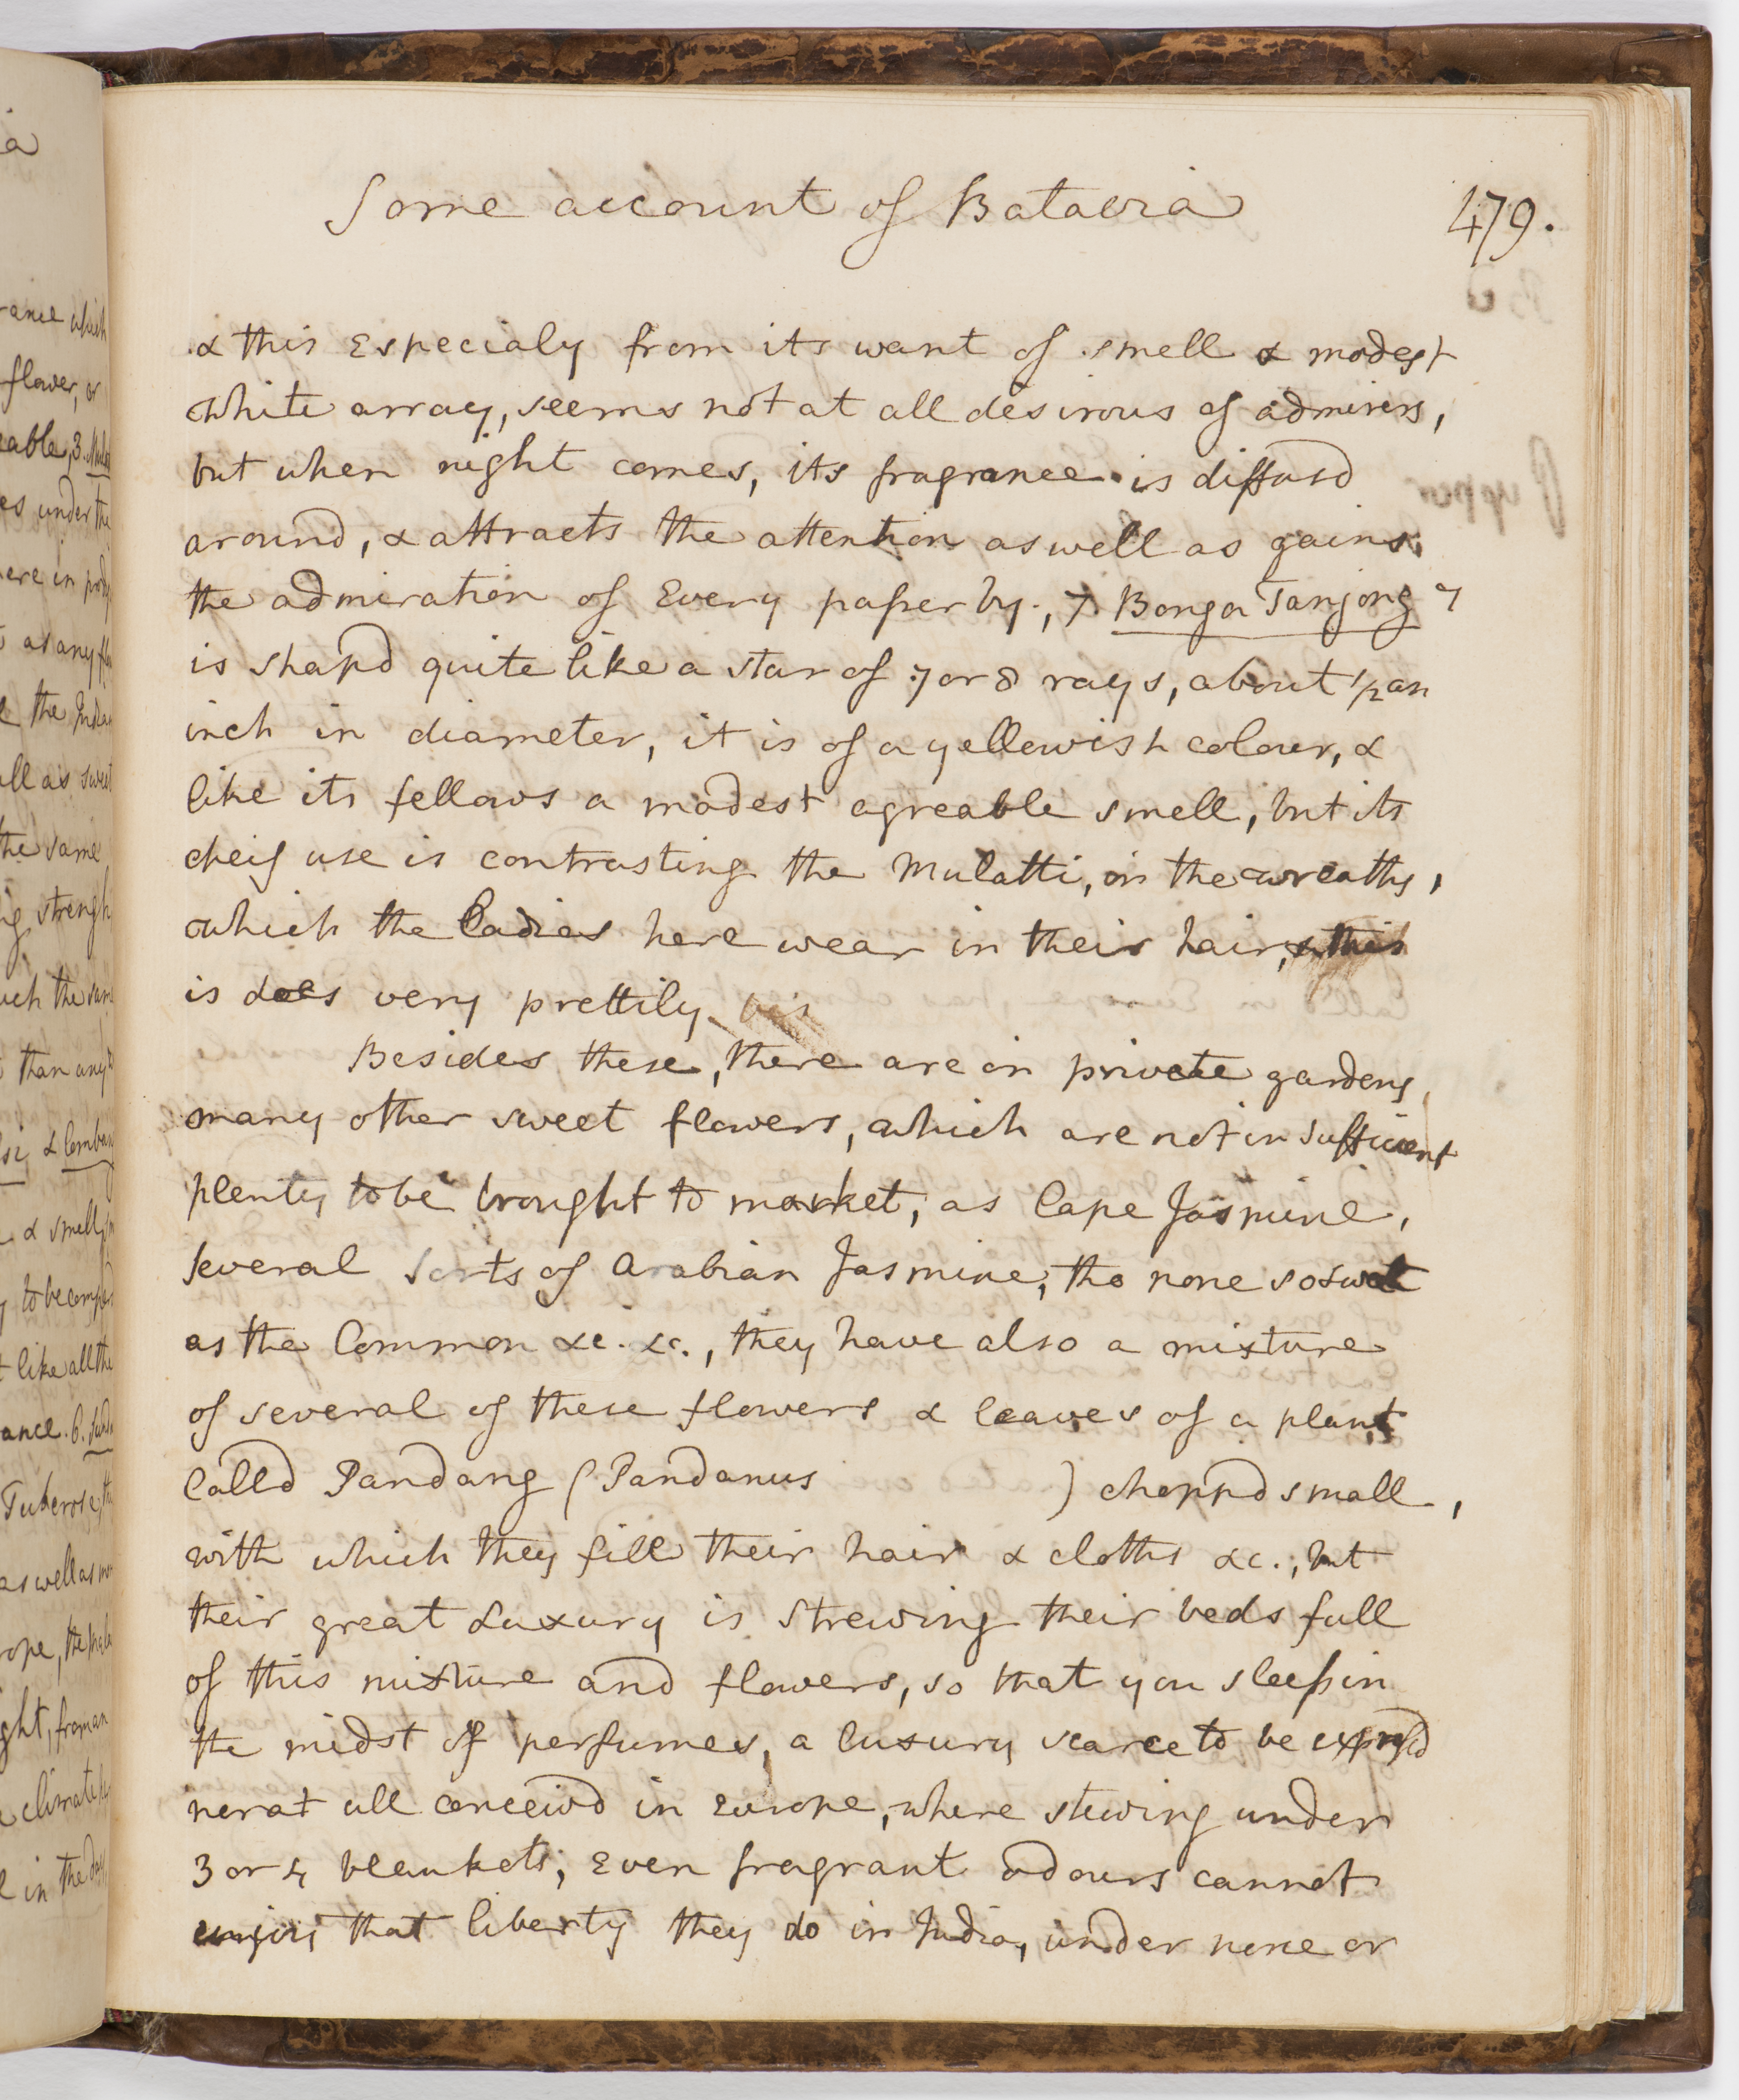 Some account of Batavia 479.
& this Especialy from its want of smell & modest
white array, seems not at all desirous of admirers,
but when night comes, its fragrance is diffusd
around, & attracts the attention as well as gains
the admiration of Every passer by., 7. Bonga Tanjong 7
is shapd quite like a star of 7 or 8 rays, about 1/2 an
inch in diameter, it is of a yellowish colour, &
like its fellows a modest agreable smell, but its
cheif use is contrasting the Mulatti, in the wreaths,
which the Ladies here wear in their hair, & this
is does very prettily.
Besides these, there are in private gardens
many other sweet flowers, which are not in sufficient
plenty to be brought to market, as Cape Jasmine,
several sorts of Arabian Jasmine, tho none so sweet
as the Common &c. &c., they have also a mixture
of several of these flowers & leaves of a plant
Calld Pandang (Pandanus ) choppd small,
with which they fill their hair & cloths &c., but
their great Luxury is strewing their beds full
of this mixture and flowers, so that you sleep in
the midst of perfumes, a luxury scarce to be exprsd
nor at all conceivd in Europe, where stewing under
3 or 4 blankets, Even fragrant odours cannot
enjoy that liberty they do in India, under none or
ance which
flower, or
able, 3.
es under the
ere in
as any
the Indian
all as sweet
the same
strength
uch the same
than any
& Comban
& smell
to be
like all the
ance. 6.
Tuberose,
as well as
rope, the
ght, from an
climate
in the